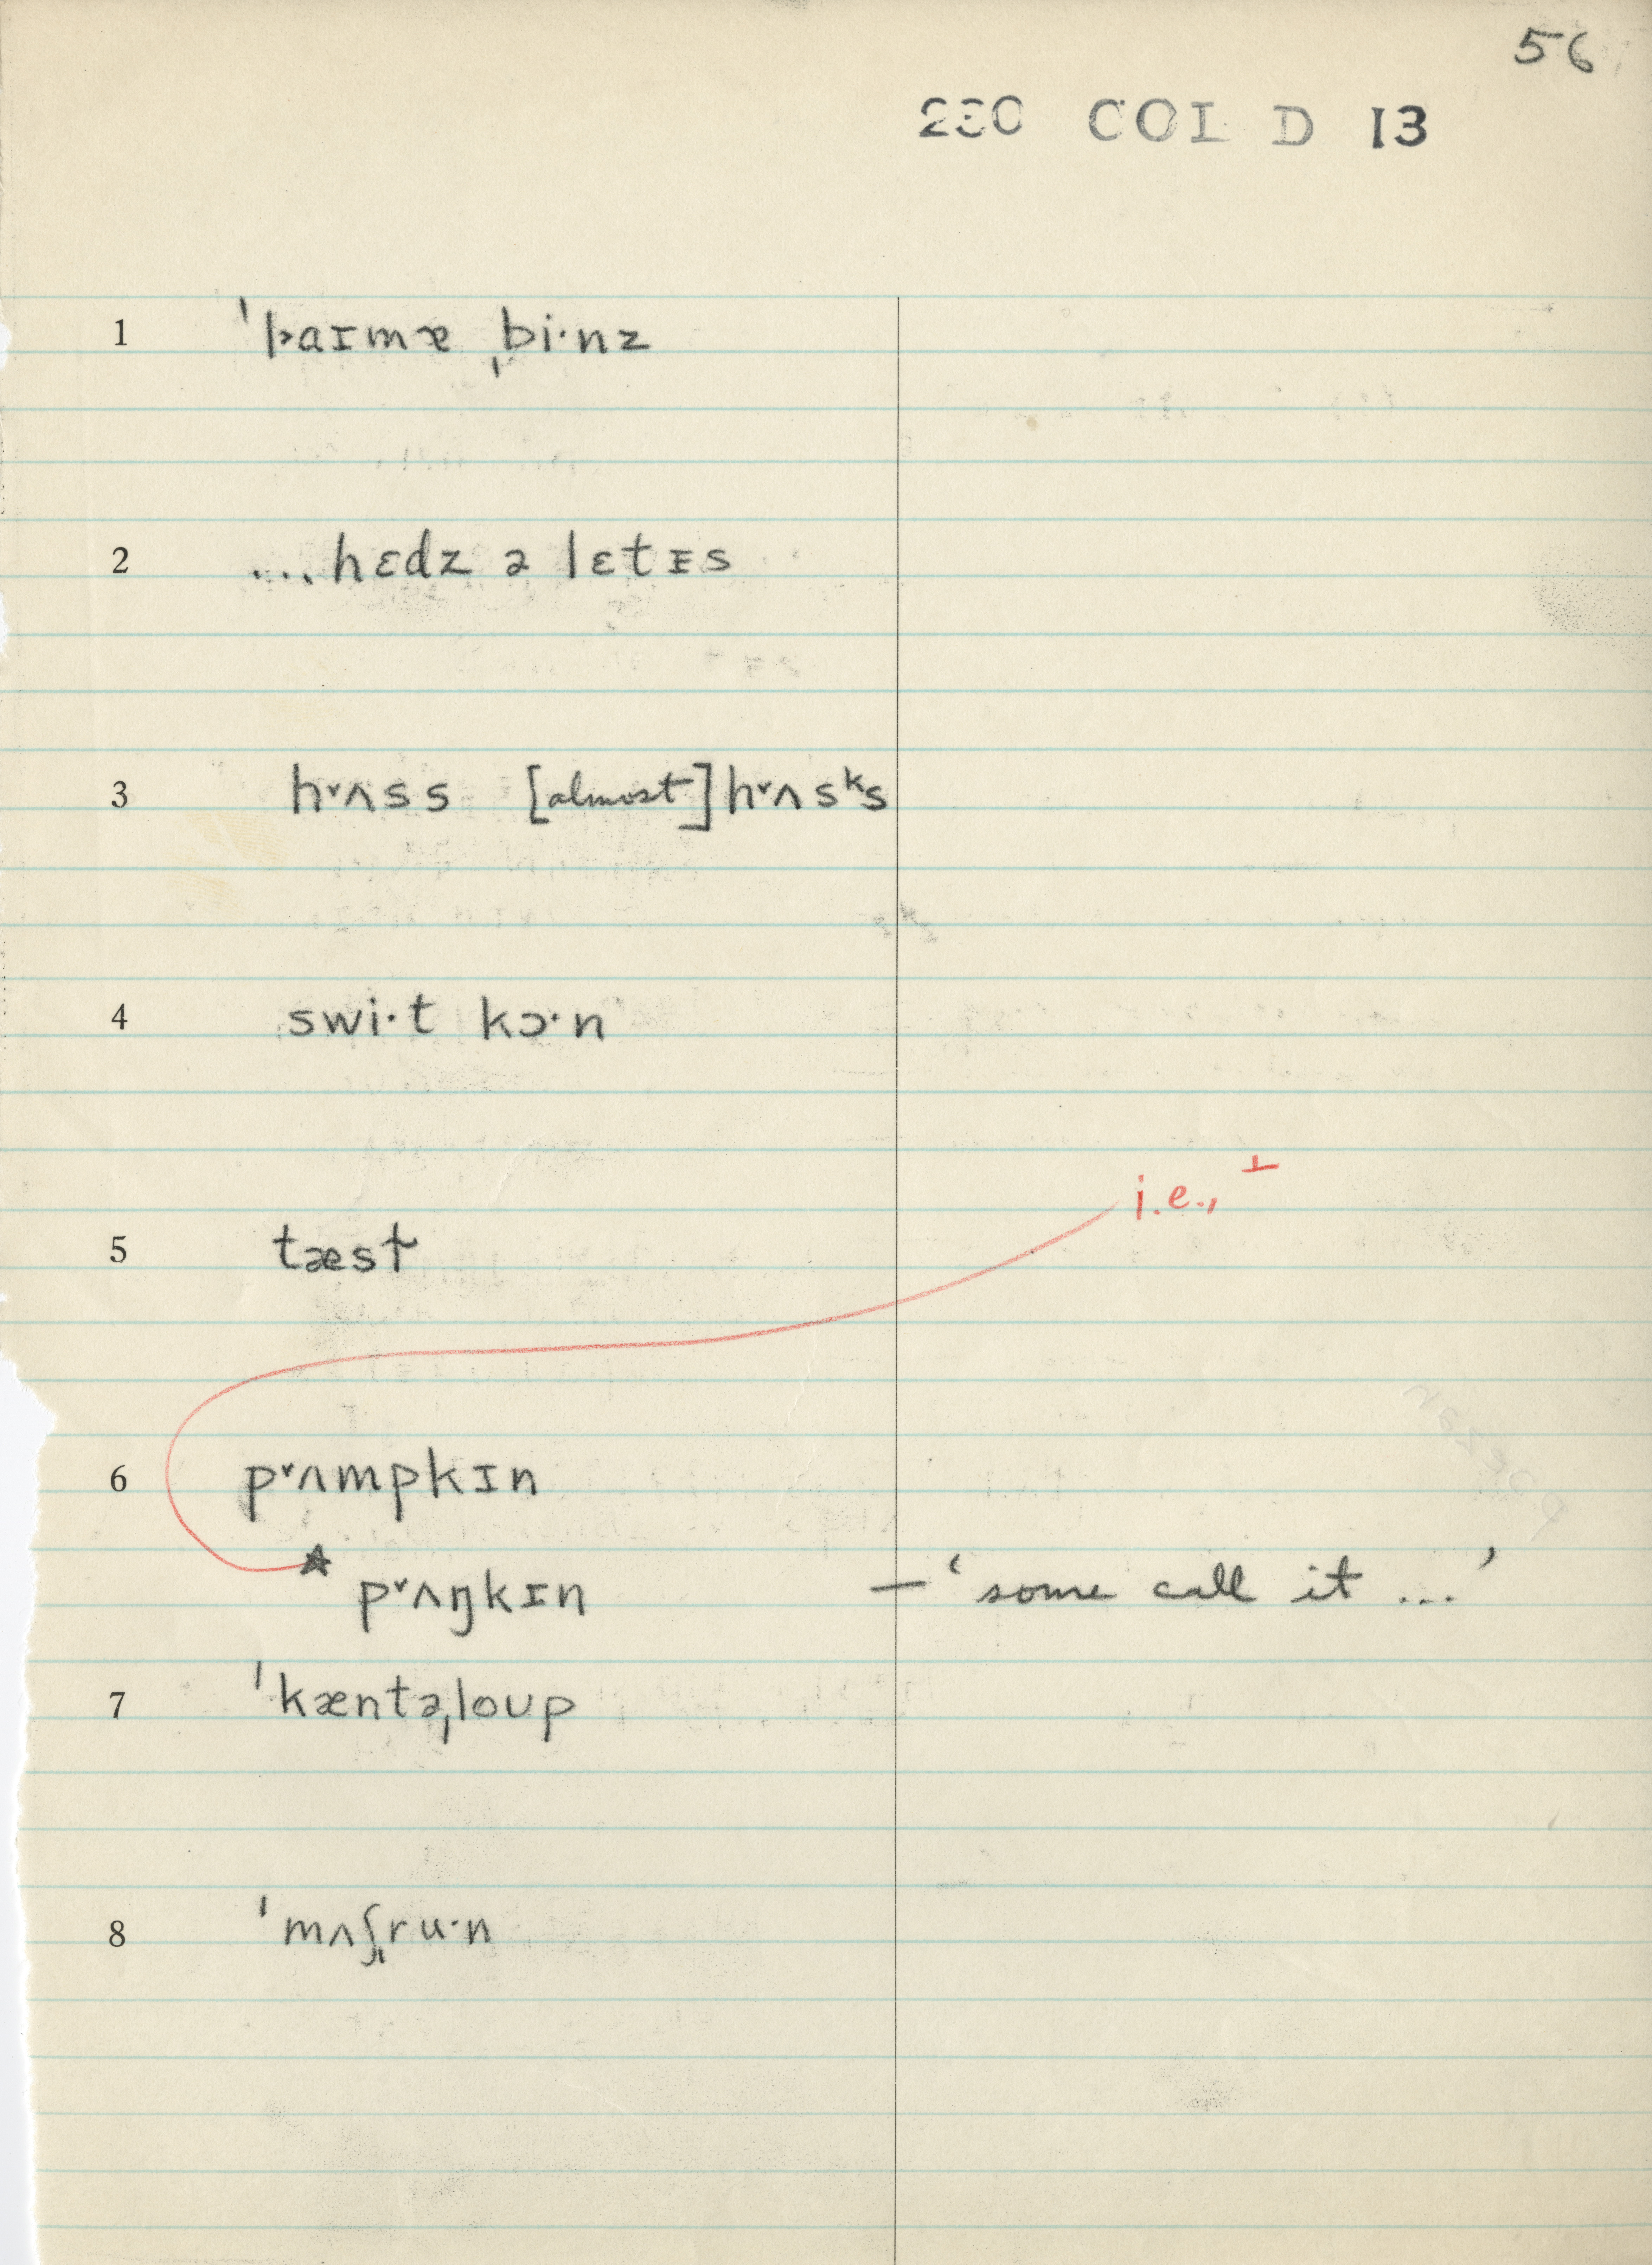 56
230 COL D 13
1 ˈlaɪmə ˌbi·nz
2 ...hɛdz ə lɛtɪs
3 hᵛʌss [almost] hᵛʌsᵏs
4 swi·t kɔ·n
i.e., ⊥
5 tæsɫ
6 pᵛʌmpkɪn
☆ pᵛʌŋkɪn — ‘some call it ...’
7 ˈkæntəˌloup
8 ˈmʌʃˌru·n